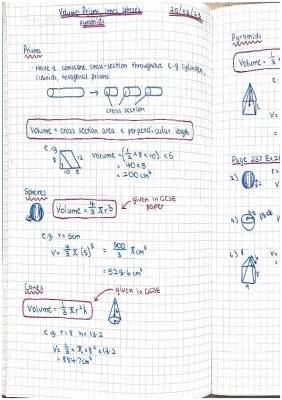 Volume Prisms, cones, spheres,
pyramids
Prisms
· Have a constant cross-section throughout e.g cylinder,
cuboids, hexagonal prisms
cross section
Volume = cross section area x perpendicular length
e.g
8
10
5
Volume = (1/2 x 8 x 10) x 5
= 40 x 5
= 200cm³
Spheres
Volume = 4/3 π r³
given in GCSE
paper
e.g r = 5cm
V = 4/3 π (5)³ = 500/3 π cm³
= 523.6cm³
Cones
given in GCSE
Volume = 1/3 π r² h
e.g r = 8 h = 13.2
V = 1/3 x π x 8² x 13.2
= 884.7cm³
Pyramids
Volume = 1/3
V =
Page 237 Ex
r =
V =
V =